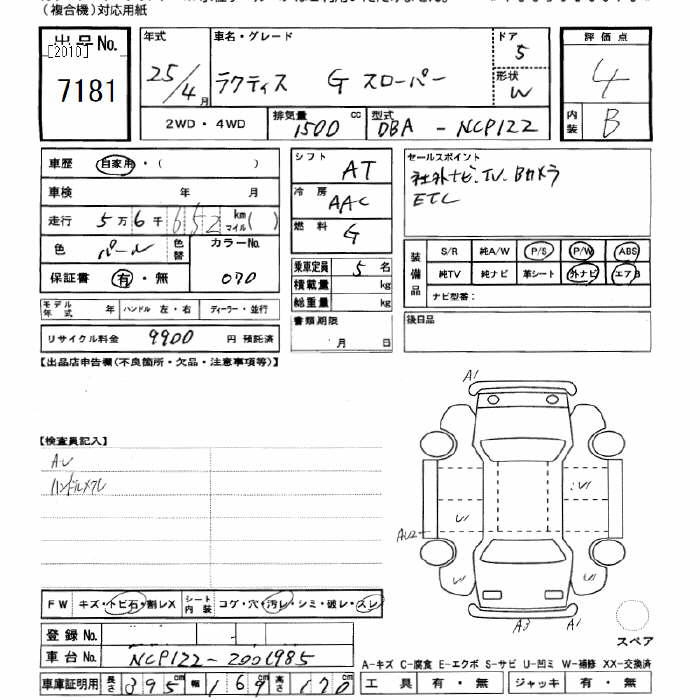 （複合機）対応用紙
出品No.
[2010]
7181
年式
25/4月
車名・グレード
ラクティス G スローパー
ドア
5
形状
W
2WD・4WD
排気量
1500 cc
型式
DBA - NCP122
評価点
4
内装
B
車歴 自家用・( )
車検 年 月
走行 5万6千652 km マイル( )
色 パール 色替
カラーNo.
070
保証書 有・無
モデル年式 年 ハンドル 左・右 ディーラー・並行
リサイクル料金 9900 円 預託済
シフト AT
冷房 AAC
燃料 G
乗車定員 5 名
積載量 kg
総重量 kg
書類期限
月 日
セールスポイント
社外ナビ、TV、Bカメラ
ETC
装備品
S/R 純A/W P/S P/W ABS
純TV 純ナビ 革シート 外ナビ エアB
ナビ型番：
後日品
【出品店申告欄（不良箇所・欠品・注意事項等）】
【検査員記入】
AU
ハンドルスレ
A1
U1
AU2
U1
U1
U1
A3
A1
スペア
FW キズ・トビ石・割レX シート内装 コゲ・穴・汚レ・シミ・破レ・スレ
登録No.
車台No. NCP122-2001985
A-キズ C-腐食 E-エクボ S-サビ U-凹ミ W-補修 XX-交換済
車庫証明用 長さ 395 幅 169 高さ 170
工具 有・無 ジャッキ 有・無